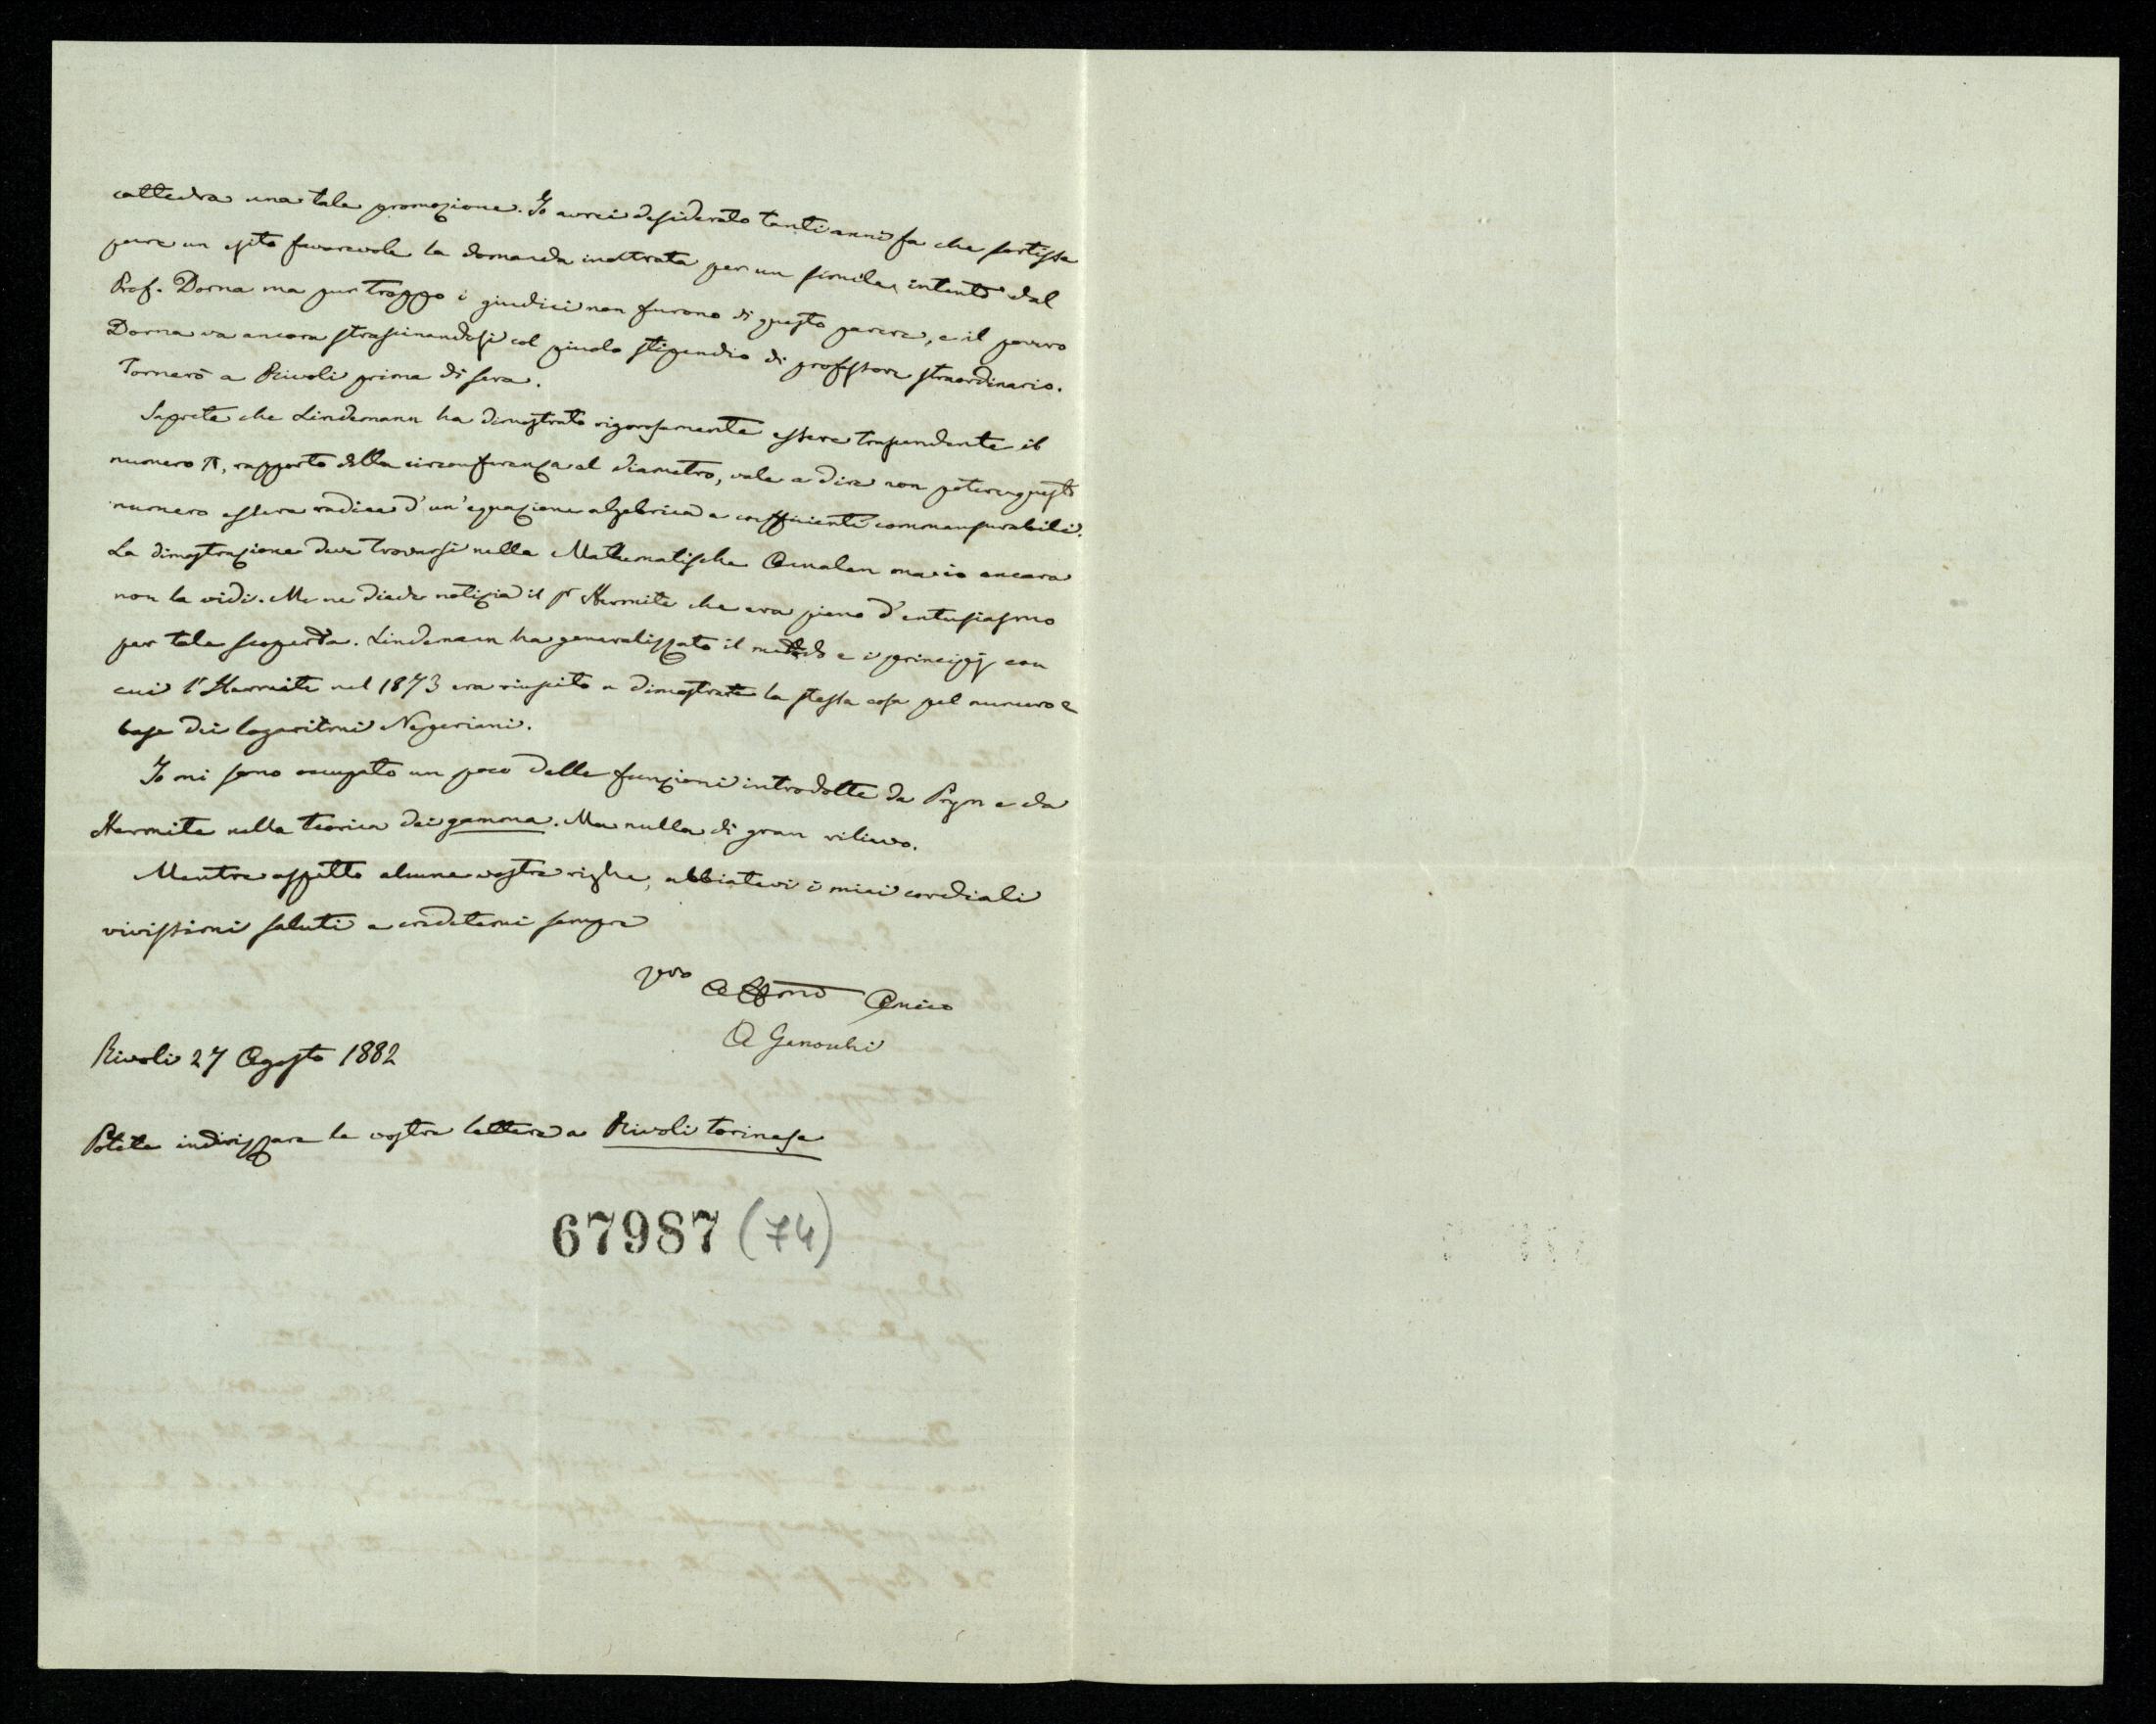 cattedra una tale promozione. Io avrei desiderato tanti anni fa che sortisse
pure un esito favorevole la domanda inoltrata per un simile intento dal
Prof. Dorna ma pur troppo i giudici non furono di questo parere, e il povero
Dorna va ancora strascinandosi col picciolo stipendio di professore straordinario.
Tornerò a Rivoli prima di sera.
Saprete che Lindemann ha dimostrato rigorosamente essere trascendente il
numero π, rapporto della circonferenza al diametro, vale a dire non potere questo
numero essere radice d'un'equazione algebrica a coefficienti commensurabili.
La dimostrazione deve trovarsi nella Mathematische Annalen ma io ancora
non la vidi. Me ne diede notizia il Hermite che era pieno d'entusiasmo
per tale scoperta. Lindemann ha generalizzato il metodo e i principj con
cui l'Hermite nel 1873 era riuscito a dimostrare la stessa cosa pel numero e
base dei logaritmi Neperiani.
Io mi sono occupato un poco delle funzioni introdotte da Prym e da
Hermite nella teorica dei gamma. Ma nulla di gran rilievo.
Mentre aspetto alcune vostre righe, abbiatevi i miei cordiali
vivissimi saluti e credetemi sempre
Vro Affmo Amico
A Genocchi
Rivoli 27 Agosto 1882
Potete indirizzare la vostra lettera a Rivoli torinese
67987 (74)